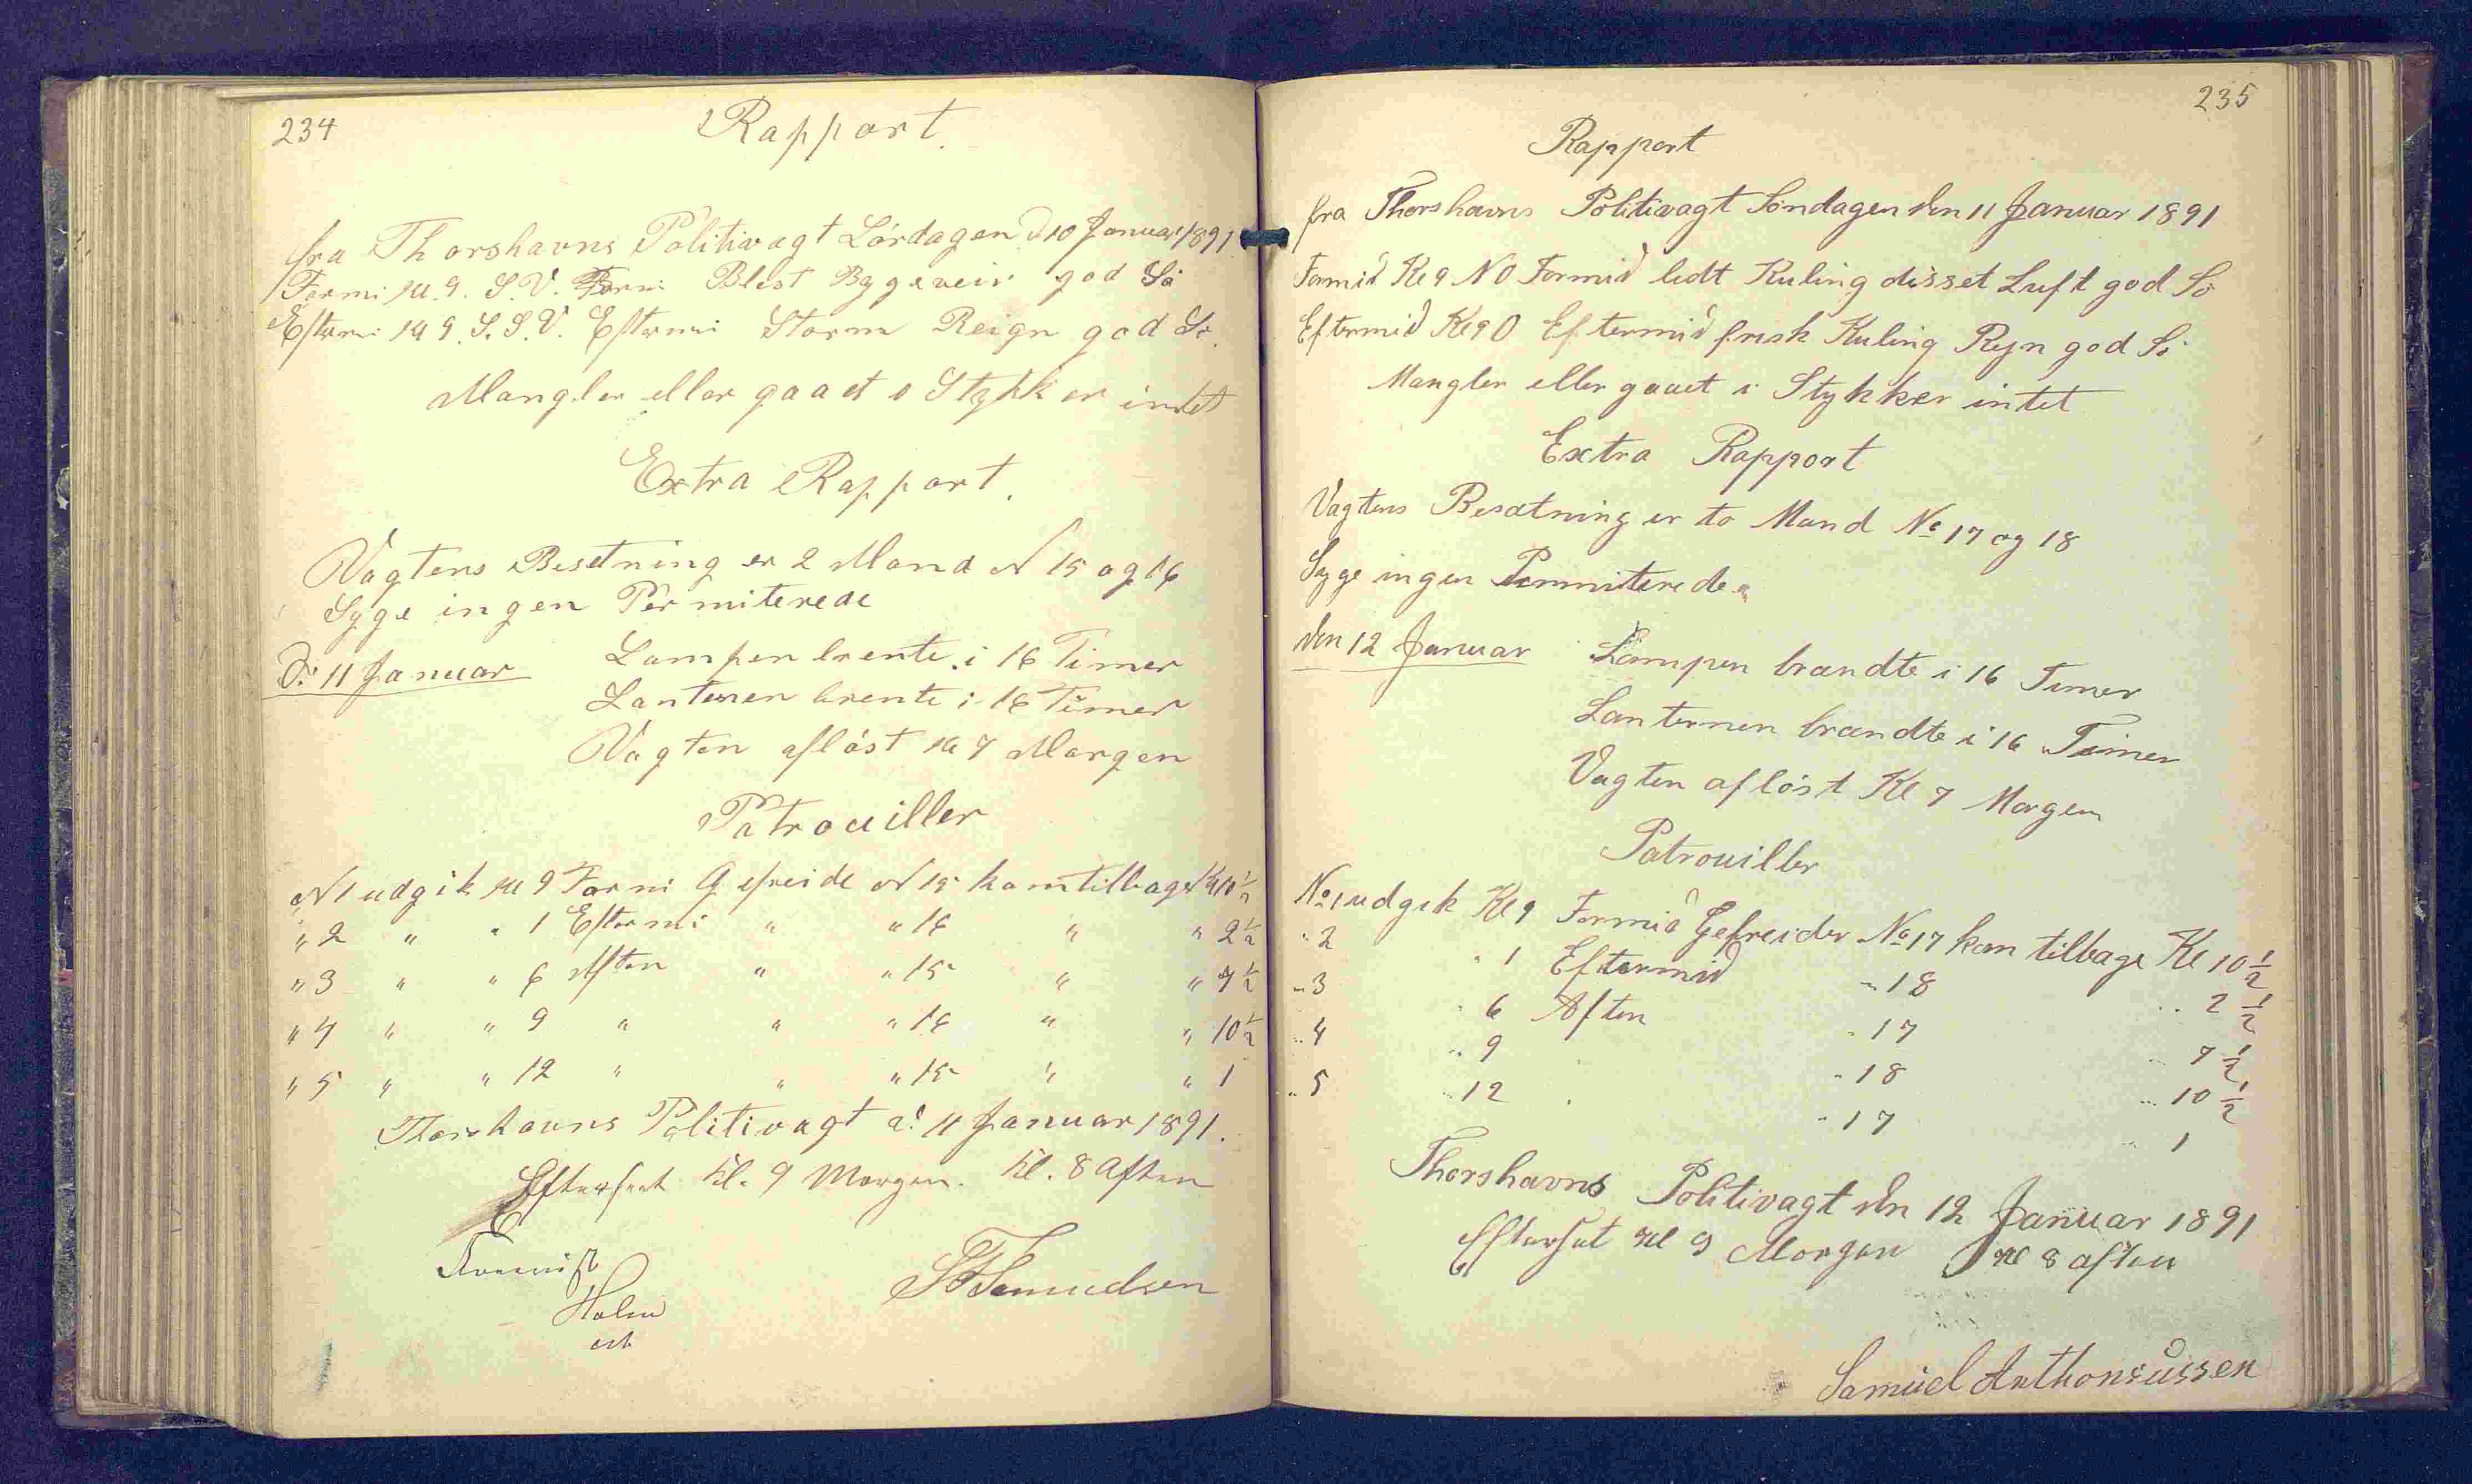 234
Rapport.
fra Thorshavns Politivagt Lördagen d 10 Januar 1891.
Formi Kl. 9. S.V. Formi Blest Bygeveir god Sö
Eftermi Kl 9. S.S.V. Eftermi Storm Reign god Sö.
Mangler eller gaaet i Stykker indtet
Extra Rapport.
Vagtens Besetning er 2 Mand N 15 og 16
Syge ingen Permiterede
D: 11 Januar Lampen brente i 16 Timer
Lanternen brente i 16 Timer
Vagten aflöst Kl 7 Morgen
Patrouiller
N 1 udgik Kl 9 Formi Gefreide N 15 kom tilbage Kl 10 1/2
" 2 " " 1 Eftermi " " 16 " " 2 1/2
" 3 " " 6 Aften " " 15 " " 7 1/2
" 4 " " 9 " " " 16 " " 10 1/2
" 5 " " 12 " " " 15 " " 1
Thorshavns Politivagt d: 11 Januar 1891.
Efterseet Kl. 9 Morgen. Kl. 8 Aften
Holm
Samuelsen
235
Rapport
fra Thorshavns Politivagt Söndagen den 11 Januar 1891
Formid Kl 9 NO Formid lidt Kuling disset Luft god Sö
Eftermid Kl 9 O Eftermid frisk Kuling Rejn god Sö
Mangler eller gaaet i Stykker intet
Extra Rapport
Vagtens Besætning er to Mand No 17 og 18
Syge ingen Permiterede "
den 12 Januar Lampen brændte i 16 Timer
Lanternen brændte i 16 Timer
Vagten aflöst Kl 7 Morgen
Patrouiller
No 1 udgik Kl 9 Formid Gefreider No 17 kom tilbage Kl 10 1/2
" 2 " 1 Eftermid " 18 " 2 1/2
" 3 " 6 Aften " 17 " 7 1/2
" 4 " 9 " " 18 " 10 1/2
" 5 " 12 " " 17 " 1
Thorshavns Politivagt den 12 Januar 1891
Efterset Kl 9 Morgen Kl 8 aften
Samuel Anthoniussen